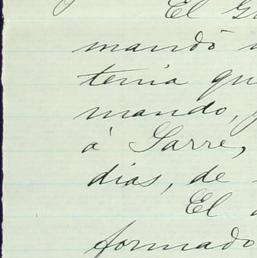 El G
mandó
tenia qu
mando,
á Sarre,
dias, de
El
formado